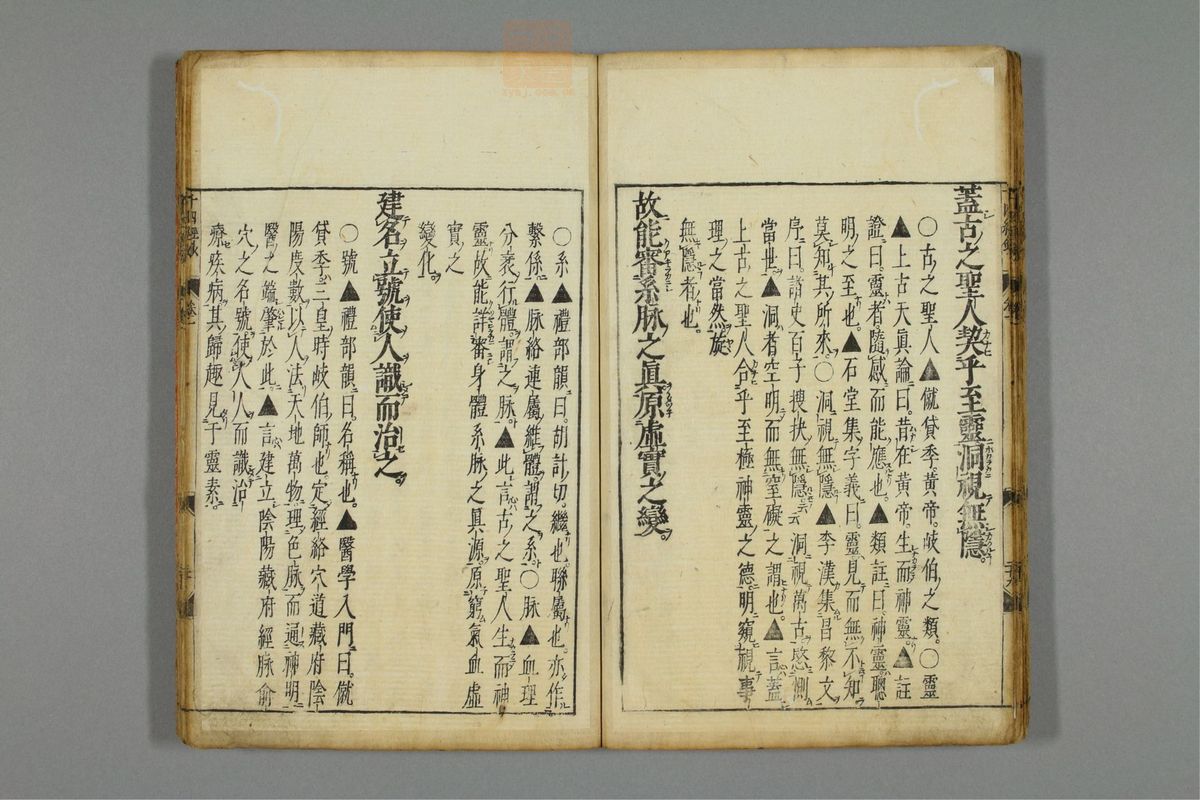 蓋古之聖人契乎至靈洞視無隱
〇古之聖人▲僦貸季黃帝岐伯之類〇靈
▲上古天眞論曰昔在黃帝生而神靈▲註
證曰靈者隨感而能應也▲類註曰神靈聰
明之至也▲石堂集字義曰靈見而無不知
莫知其所來〇洞視無隱▲李漢集昌黎文
序曰諸史百子搜抉無隱云云洞視萬古愍惻
當世▲洞者空明而無窒礙之謂也▲言蓋
上古之聖人合乎至極神靈之德明窺視事
理之當然旋
無隱者也
故能審系脉之眞原虛實之變
〇系▲禮部韻曰胡計切繼也聯屬也亦作
繫係▲脉絡連屬維體謂之系〇脉▲血理
分衺行體謂之脉▲此言古之聖人生而神
靈故能詳審身體系脉之眞源原窮氣血虛
實之
變化
建名立號使人識而治之
〇號▲禮部韻曰名稱也▲醫學入門曰僦
貸季三皇時岐伯師也定經絡穴道藏府陰
陽度數以人法天地萬物理色脉而通神明
醫之鑑肇於此▲言建立陰陽藏府經脉俞
穴之名號使人人而識治
療疾病其歸趣見于靈素